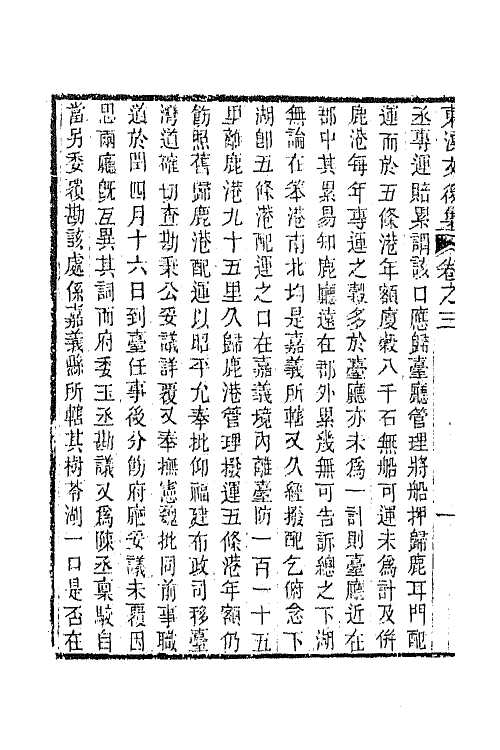 東溟文後集 卷之三 一
丞專運賠累謂該口應歸臺廳管理將船押歸鹿耳門配
運而於五條港年額廈穀八千石無船可運未為計及併
鹿港每年專運之穀多於臺廳亦未為一計則臺廳近在
郡中其累易知鹿廳遠在郡外累幾無可告訴總之下湖
無論在笨港南北均是嘉義所轄又久經撥配乞俯念下
湖卽五條港配運之口在嘉義境內離臺防一百一十五
里離鹿港九十五里久歸鹿港管理撥運五條港年額仍
飭照舊歸鹿港配運以昭平允奉批仰福建布政司移臺
灣道確切查勘秉公妥議詳覆又奉撫憲魏批同前事職
道於閏四月十六日到臺任事後分飭府廳妥議未覆因
思兩廳旣互異其詞而府委玉丞勘議又為陳丞稟駮自
當另委覆勘該處係嘉義縣所轄其樹苓湖一口是否在